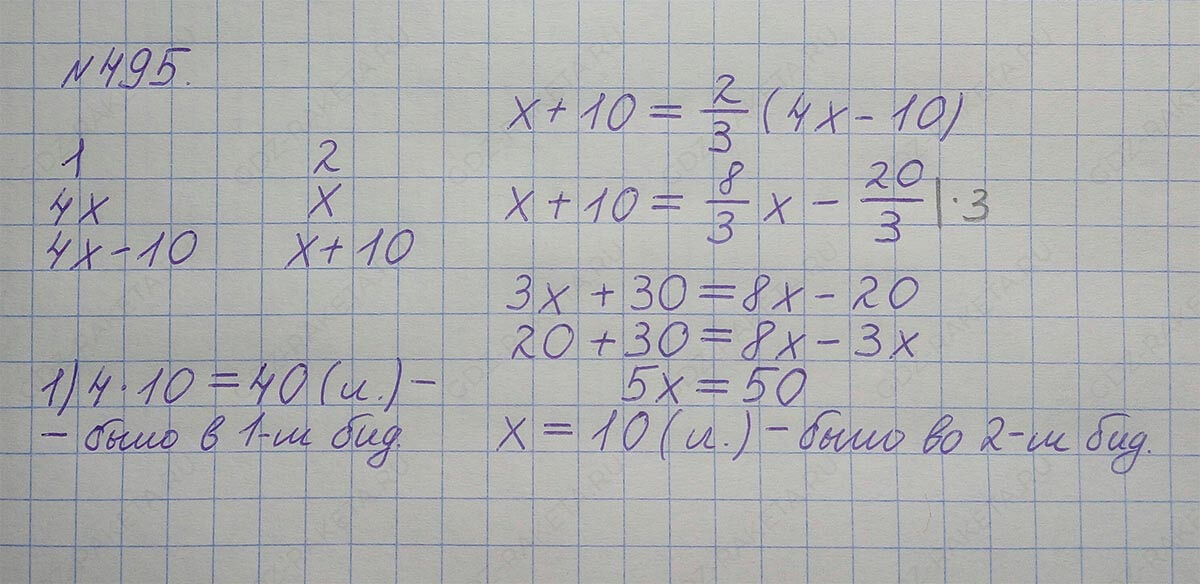 №495.
1 2
4x x
4x-10 x+10
1) 4·10=40 (л.) -
- было в 1-м бид.
x+10= 2/3 (4x-10)
x+10= 8/3 x - 20/3 |·3
3x+30=8x-20
20+30=8x-3x
5x=50
x=10 (л.) - было во 2-м бид.
GDZ-RAKETA.RU